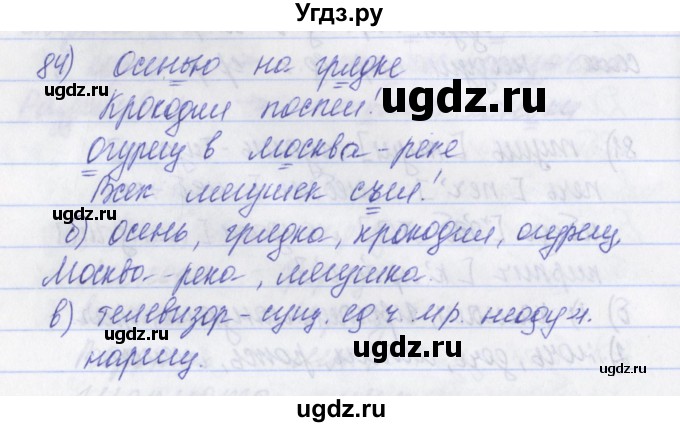 Угдз.ру
84) Осенью на грядке
ugdz.ru
Крокодил поспел!
ugdz.ru
ugdz.ru
Огурец в Москва-реке
Всех лягушек съел!
б) Осень, грядка, крокодил, огурец,
Москва-река, лягушка.
ugdz.ru
в) телевизор - сущ. ед.ч. м.р. неодуш.
ugdz.ru
ugdz.ru
нариц.
ugdz.ru